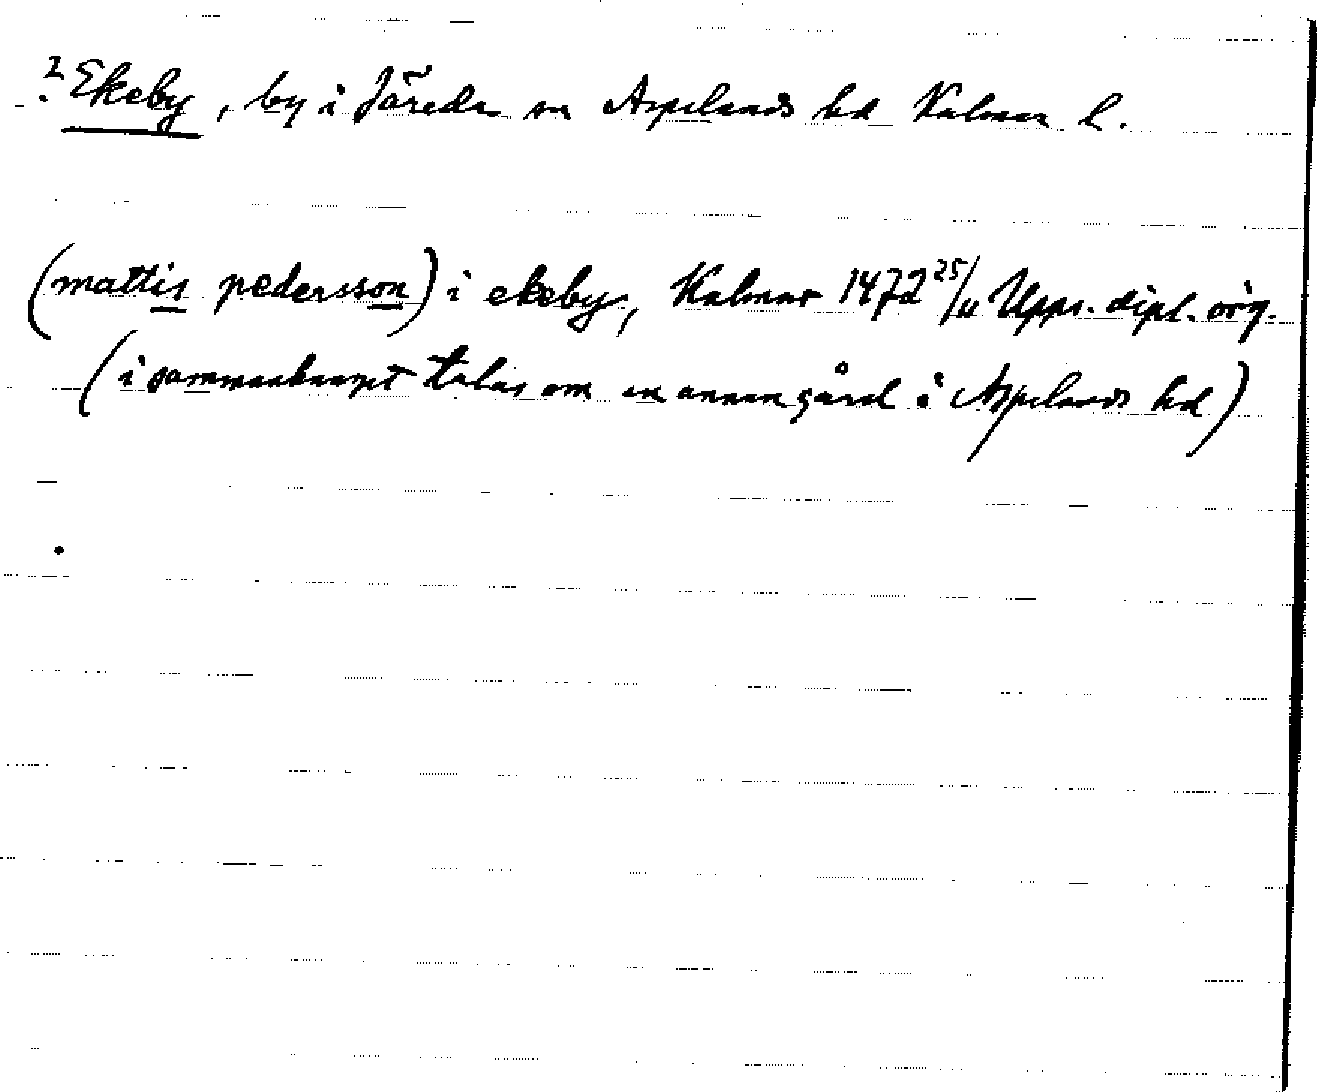 ? Ekeby, by i Järeda sn Aspelands hd Kalmar l.
(mattis pedersson) i ekeby, Kalmar 1472 25/11 Upps. dipl. orig.
(i sammanhanget talas om en annan gård i Aspelands hd)